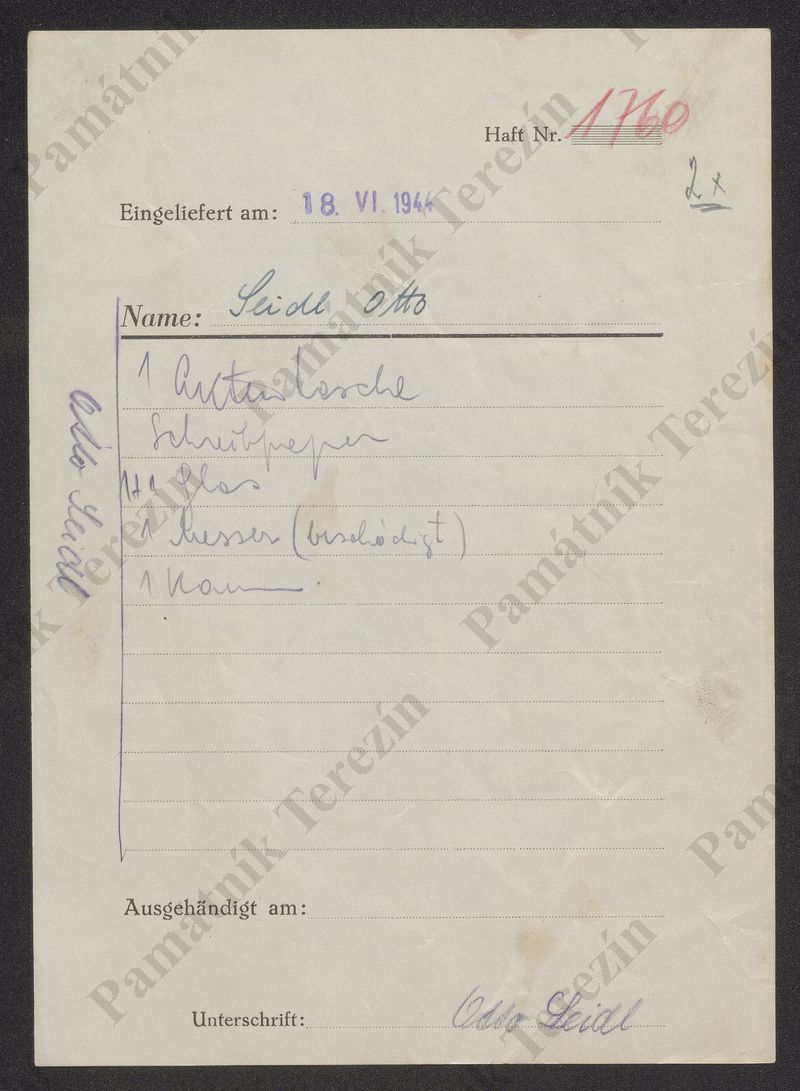 Haft Nr. 1760
2x
Eingeliefert am: 18. VI. 1944
Name: Seidl Otto
1 Aktentasche
Schreibpapier
1+1 Glas
1 Messer (beschädigt)
1 Kamm
Otto Seidl
Ausgehändigt am:
Unterschrift: Otto Seidl
Památník Terezín